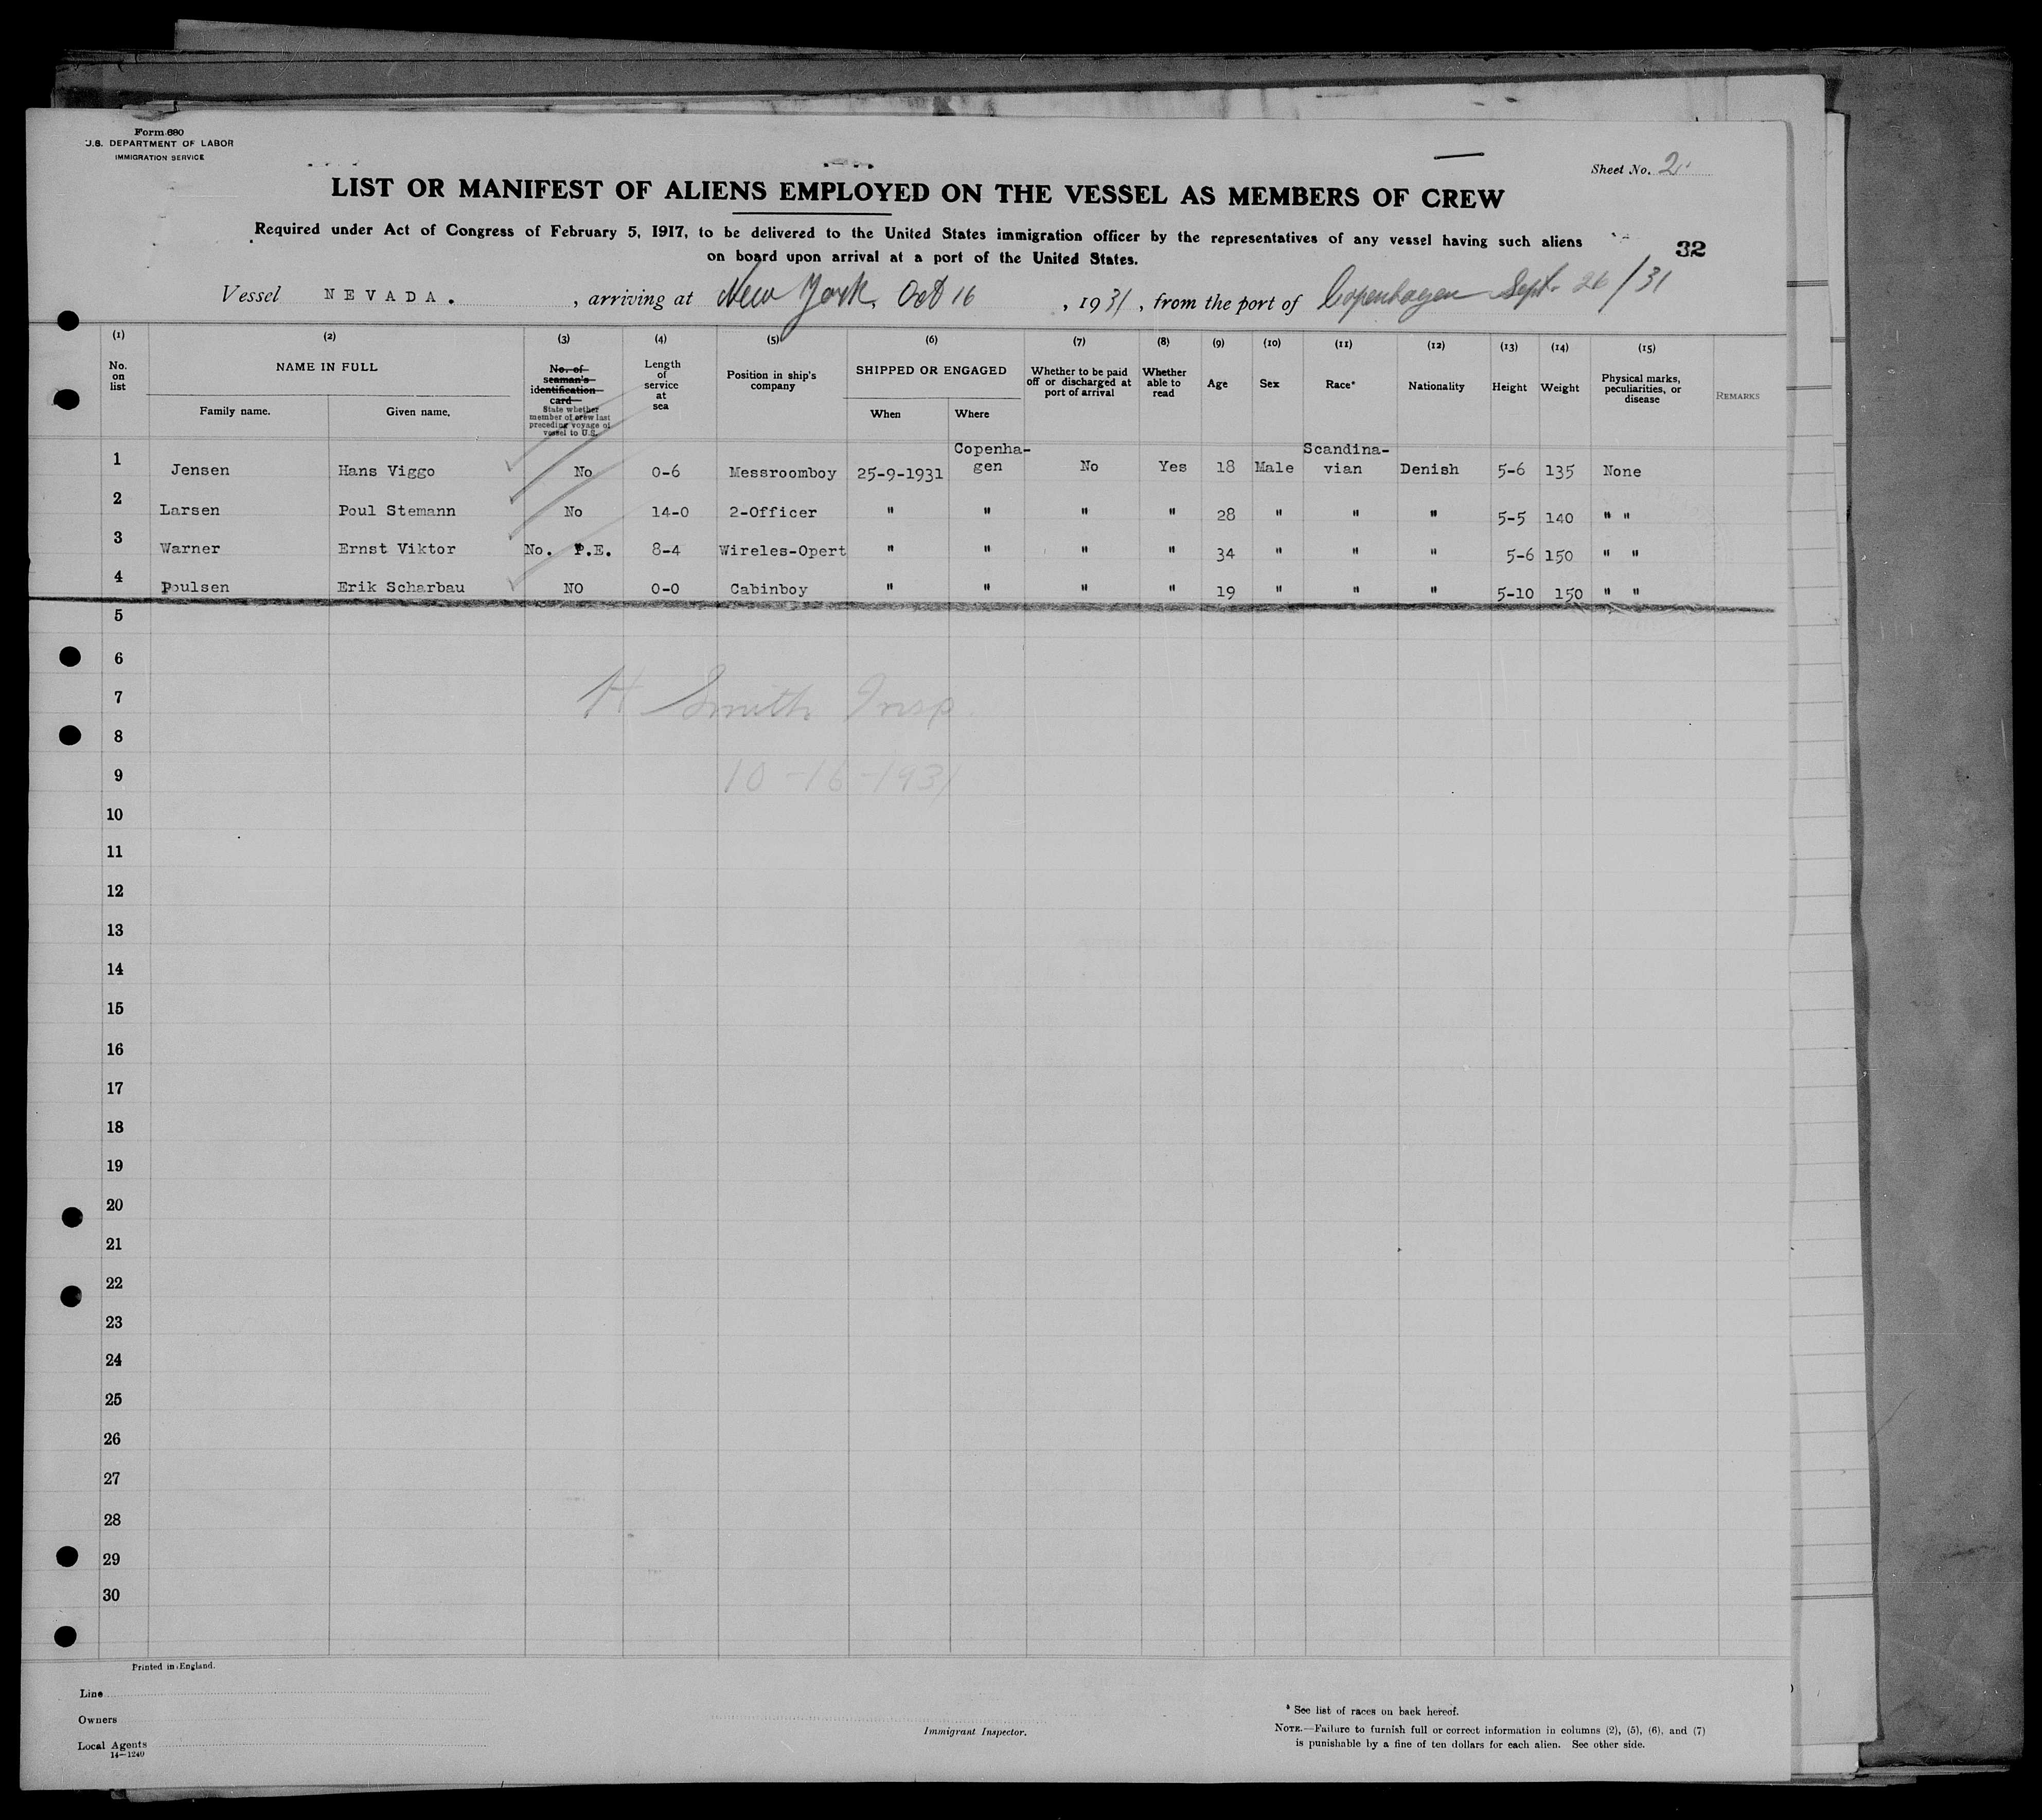 Form 680
U.S. DEPARTMENT OF LABOR
IMMIGRATION SERVICE
Sheet No. 2
LIST OR MANIFEST OF ALIENS EMPLOYED ON THE VESSEL AS MEMBERS OF CREW
Required under Act of Congress of February 5, 1917, to be delivered to the United States immigration officer by the representatives of any vessel having such aliens
on board upon arrival at a port of the United States.
32
Vessel NEVADA. , arriving at New York, Oct 16 , 1931 , from the port of Copenhagen Sept. 26/31
(1) (2) (3) (4) (5) (6) (7) (8) (9) (10) (11) (12) (13) (14) (15)
No. on list NAME IN FULL Family name. Given name. No. of seaman's identification card State whether member of crew last preceding voyage of vessel to U.S. Length of service at sea Position in ship's company SHIPPED OR ENGAGED When Where Whether to be paid off or discharged at port of arrival Whether able to read Age Sex Race* Nationality Height Weight Physical marks, peculiarities, or disease REMARKS
1 Jensen Hans Viggo No 0-6 Messroomboy 25-9-1931 Copenha-gen No Yes 18 Male Scandina-vian Denish 5-6 135 None
2 Larsen Poul Stemann No 14-0 2-Officer " " " " 28 " " " 5-5 140 " "
3 Warner Ernst Viktor No. P.E. 8-4 Wireles-Opert " " " " 34 " " " 5-6 150 " "
4 Poulsen Erik Scharbau NO 0-0 Cabinboy " " " " 19 " " " 5-10 150 " "
5
6
7 H Smith Insp.
8
9 10-16-1931
10
11
12
13
14
15
16
17
18
19
20
21
22
23
24
25
26
27
28
29
30
Printed in England.
Line
Owners
Local Agents
14-1240
Immigrant Inspector.
* See list of races on back hereof.
NOTE.—Failure to furnish full or correct information in columns (2), (5), (6), and (7)
is punishable by a fine of ten dollars for each alien. See other side.